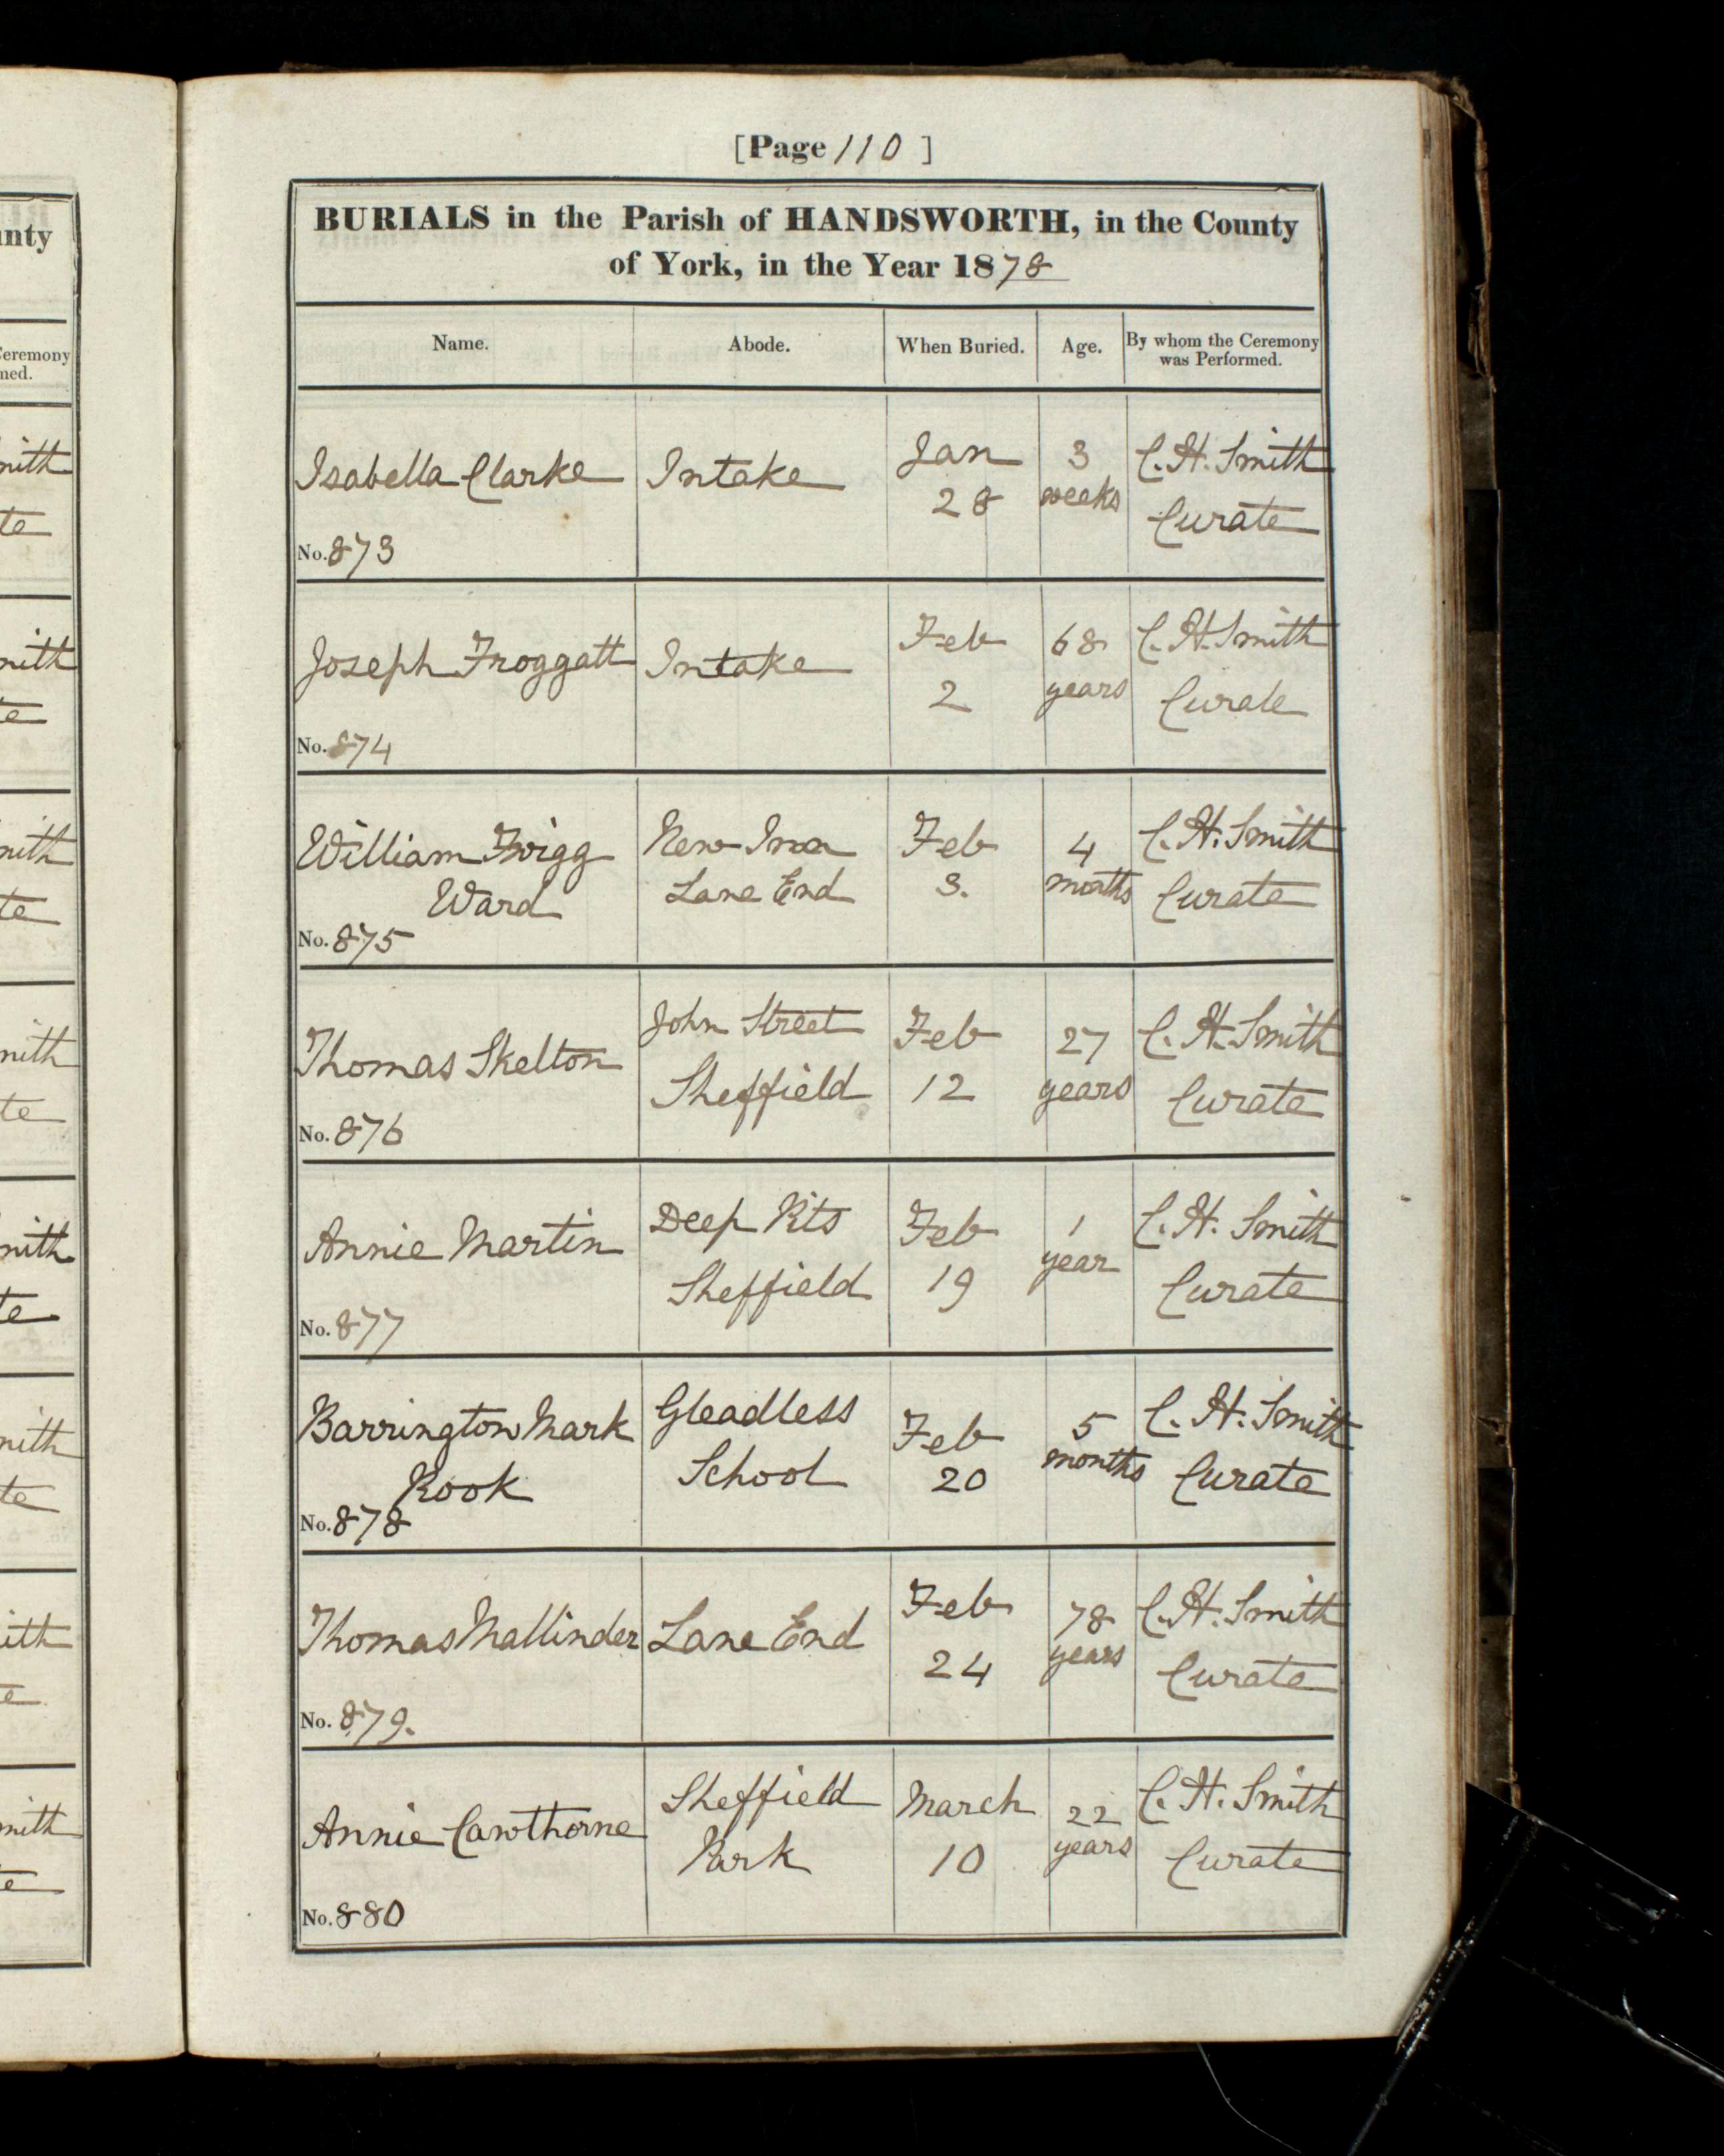 [Page 110 ]
BURIALS in the Parish of HANDSWORTH, in the County
of York, in the Year 1878
Name. Abode. When Buried. Age. By whom the Ceremony was Performed.
Isabella Clarke Intake Jan 28 3 weeks C. H. Smith Curate
No. 873
Joseph Froggatt Intake Feb 2 68 years C. H. Smith Curate
No. 874
William Twigg Ward New Inn Lane End Feb 3. 4 months C. H. Smith Curate
No. 875
Thomas Skelton John Street Sheffield Feb 12 27 years C. H. Smith Curate
No. 876
Annie Martin Deep Pits Sheffield Feb 19 1 year C. H. Smith Curate
No. 877
Barrington Mark Rook Gleadless School Feb 20 5 months C. H. Smith Curate
No. 878
Thomas Mallinder Lane End Feb 24 78 years C. H. Smith Curate
No. 879.
Annie Cawthorne Sheffield Park March 10 22 years C. H. Smith Curate
No. 880